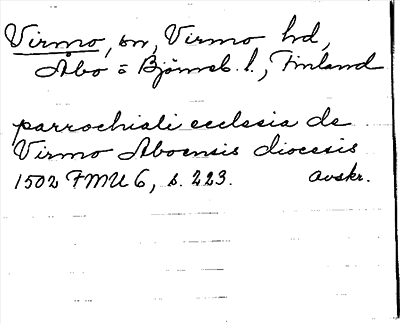 Virmo, sn, Virmo hd,
Åbo = Björneb. l., Finland
parrochiali ecclesia de
Virmo Aboensis diocesis
1502 FMU 6, s. 223. Avskr.